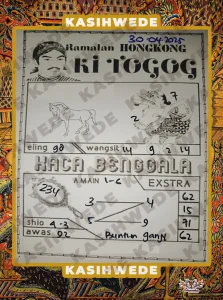 KASIHWEDE
30 04 2025
Ramalan HONGKONG
Ki TOGOG
2 7
2
eling 98 wangsit 14 9 2 14
KACA BENGGALA
A MAIN 1-6 EXSTRA
234
3 4
5 9
62
15
71
62
shio 4-3
awas 02 Buntun ganjil
KASIHWEDE